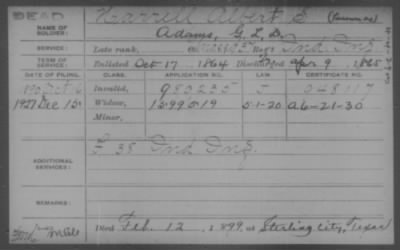 DEAD
NAME OF SOLDIER: Harrell Albert S
Adams, G. L. D.
SERVICE: Late rank, Reg't Ind Inf
TERM OF SERVICE: Enlisted Oct 17, 1864 Discharged Apr 9, 1865
DATE OF FILING. CLASS. APPLICATION NO. LAW. CERTIFICATE NO.
Oct 6 Invalid, 983235
1927 Dec 15 Widow, 1599519 5-1-20 A6-21-30
Minor,
ADDITIONAL SERVICES: F 38 Ind Inf.
REMARKS:
Died Feb. 12, 1899, at Sterling City, Texas